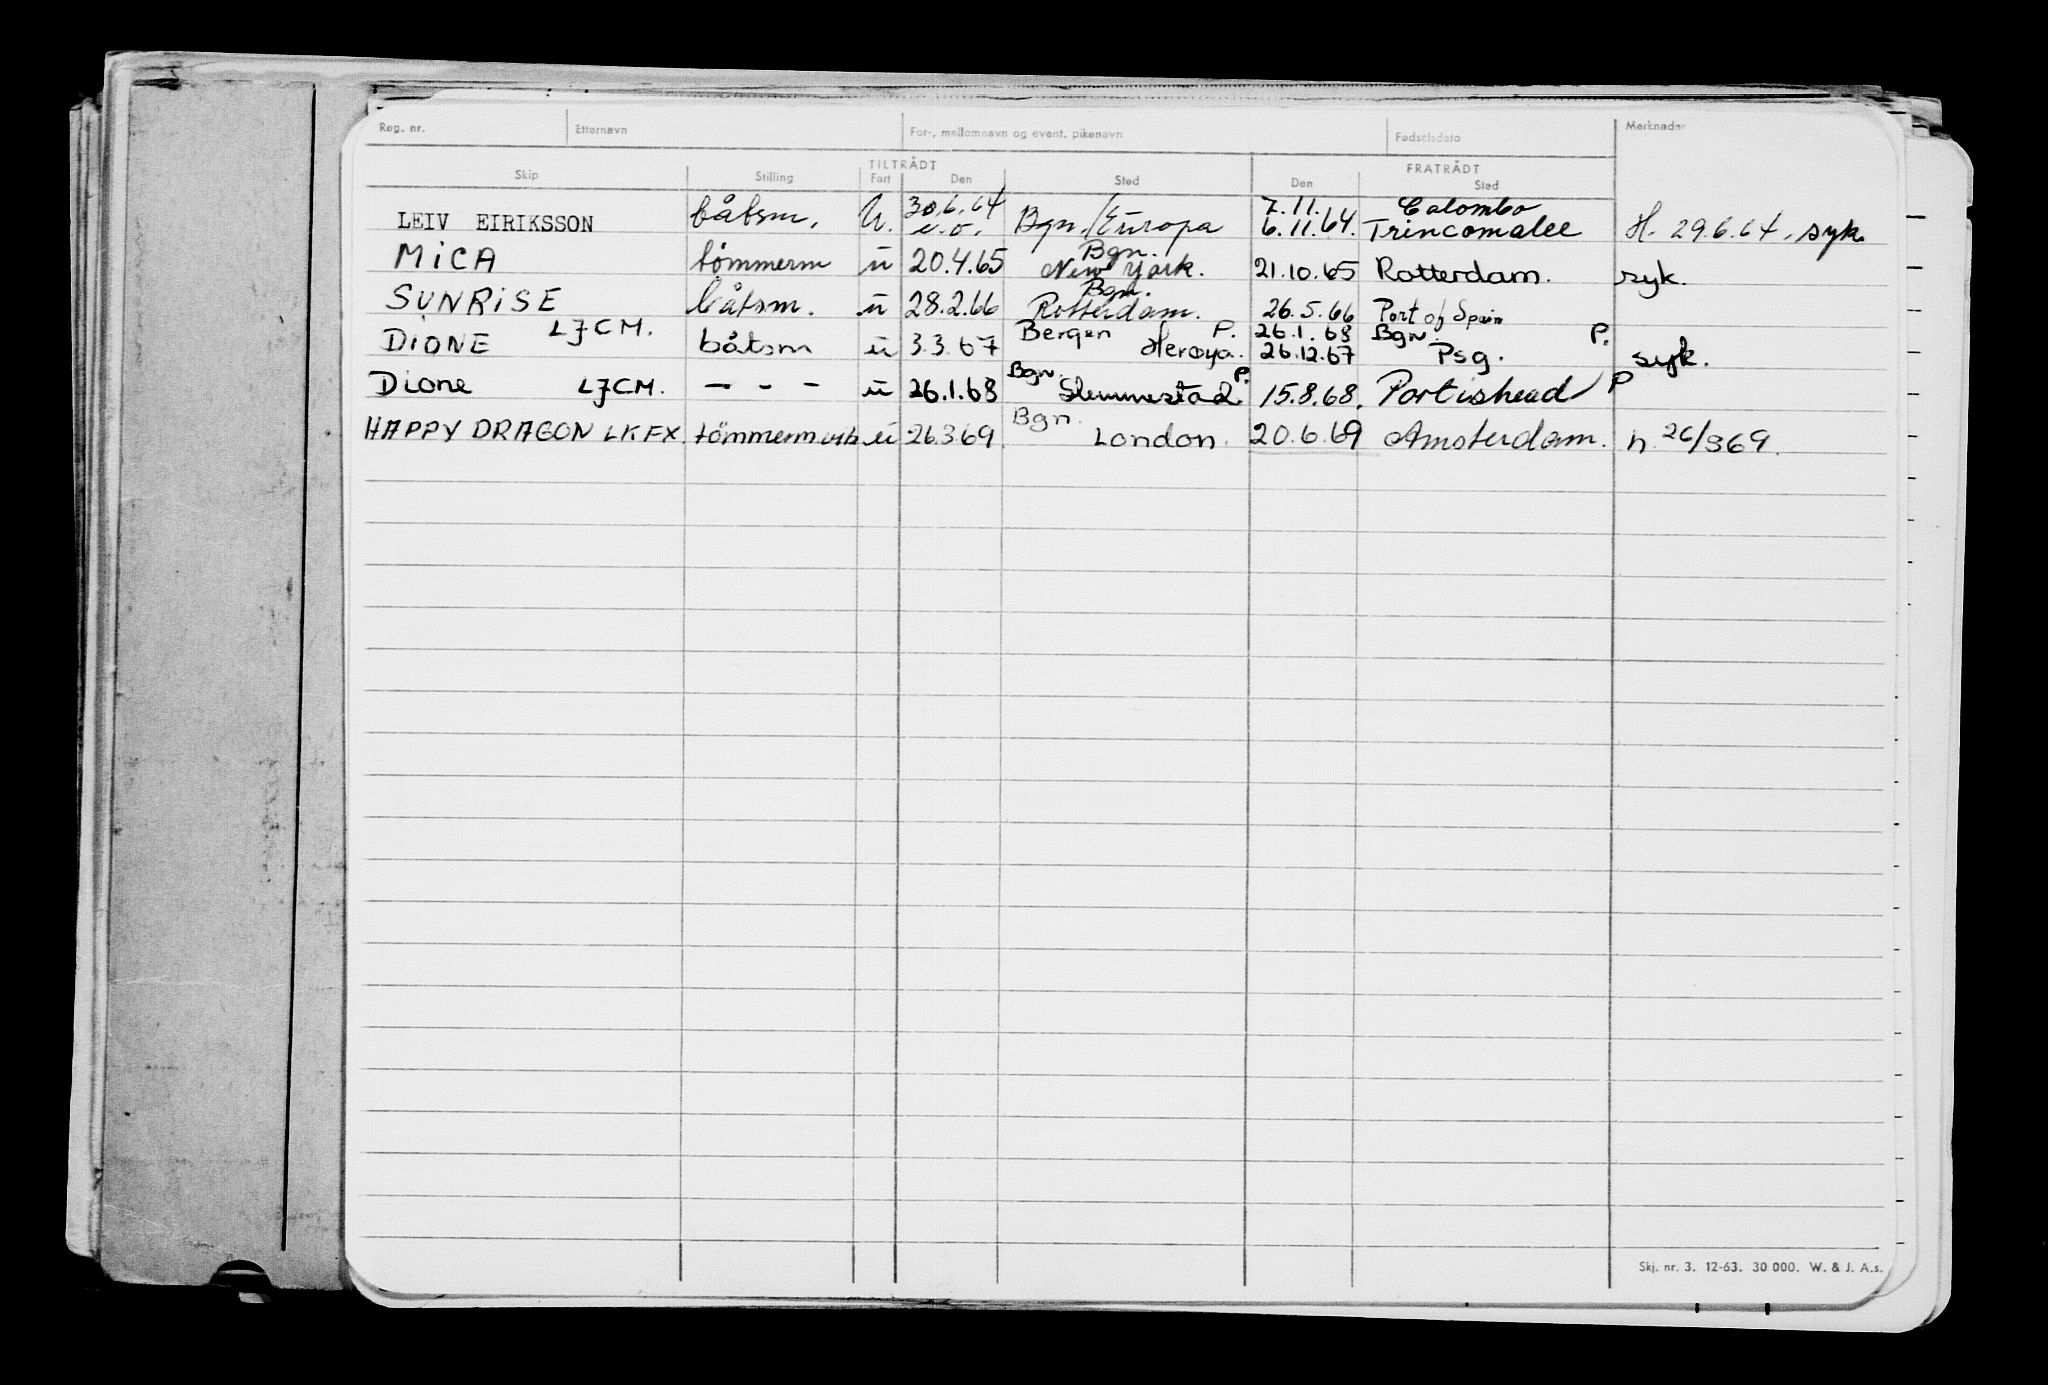 Reg. nr. Etternavn For-, mellomnavn og event. pikenavn Fødselsdato Merknader
TILTRÅDT FRATRÅDT
Skip Stilling Fart Den Sted Den Sted
30.6.64 7.11. Colombo
LEIV EIRIKSSON båtsm. U. u.o. Bgn./Europa 6.11.64. Trincomalee H. 29.6.64. syk.
Bgn.
MICA tømmerm u 20.4.65 New York. 21.10.65 Rotterdam. syk.
Bgn.
SUNRISE båtsm. u 28.2.66 Rotterdam. 26.5.66 Port of Spain
LJCM. Bergen P. 26.1.68 Bgn. P.
DIONE båtsm u 3.3.67 Herøya. 26.12.67 Psg. syk.
Bgn. P.
Dione LJCM. - - - u 26.1.68 Slemmestad. 15.8.68. Portishead P
Bgn.
HAPPY DRAGON LKFX tømmerm u 26.3.69. London. 20.6.69 Amsterdam. h. 26/369.
Skj. nr. 3. 12-63. 30 000. W. & J. A.s.